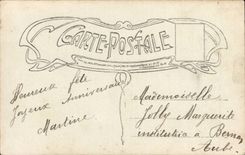 CARTE-POSTALE
Heureuse fête
Joyeux Anniversaire
Martine
Mademoiselle
Jolly Marguerite
institutrice à
Aube